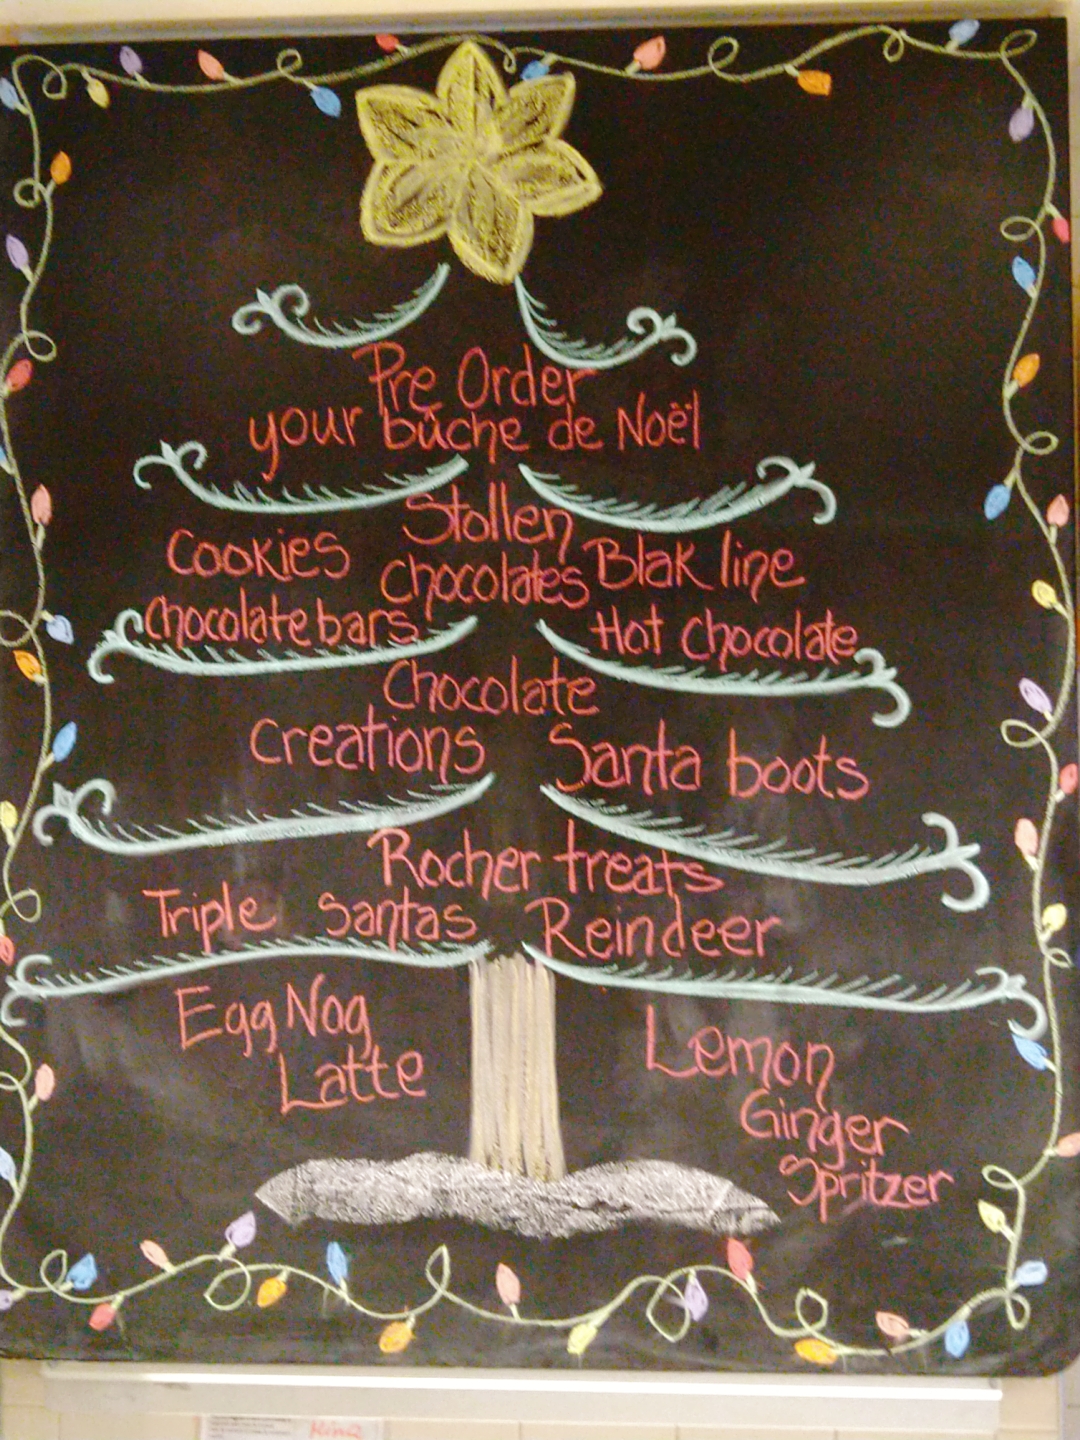 Pre Order
your bûche de Noël
Stollen
Cookies
Chocolates
Blak line
Chocolate bars
Hot Chocolate
Chocolate
Creations
Santa boots
Rocher treats
Triple Santas
Reindeer
Egg Nog
Latte
Lemon
Ginger
Spritzer